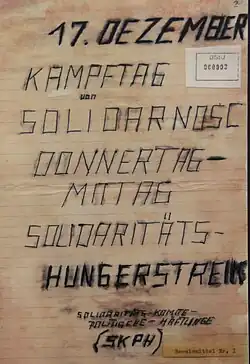 17. DEZEMBER
KAMPFTAG
von
SOLIDARNOSC
DONNERTAG-
MITTAG
SOLIDARITÄTS-
HUNGERSTREIK
SOLIDARITÄTS-KOMITE-
POLITISCHE-HÄFTLINGE
(SKPH)
Beweismittel Nr. 2